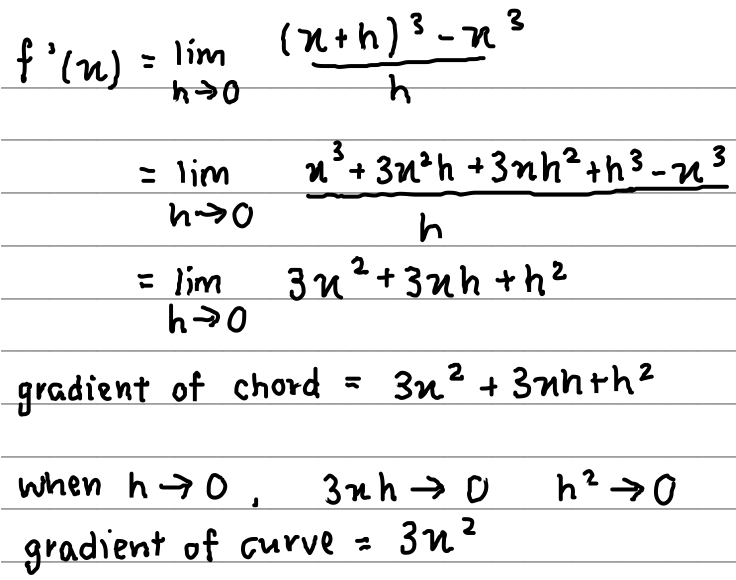 f'(x) = lim h→0 (x+h)³ - x³ / h
= lim h→0 x³ + 3x²h + 3xh² + h³ - x³ / h
= lim h→0 3x² + 3xh + h²
gradient of chord = 3x² + 3xh + h²
when h → 0 , 3xh → 0 h² → 0
gradient of curve = 3x²